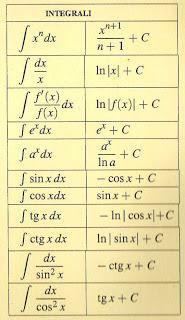 INTEGRALI
∫ xⁿ dx    xⁿ⁺¹/(n + 1) + C
∫ dx/x    ln |x| + C
∫ f'(x)/f(x) dx    ln |f(x)| + C
∫ eˣ dx    eˣ + C
∫ aˣ dx    aˣ/ln a + C
∫ sin x dx    – cos x + C
∫ cos x dx    sin x + C
∫ tg x dx    – ln | cos x| + C
∫ ctg x dx    ln | sin x| + C
∫ dx/sin² x    – ctg x + C
∫ dx/cos² x    tg x + C